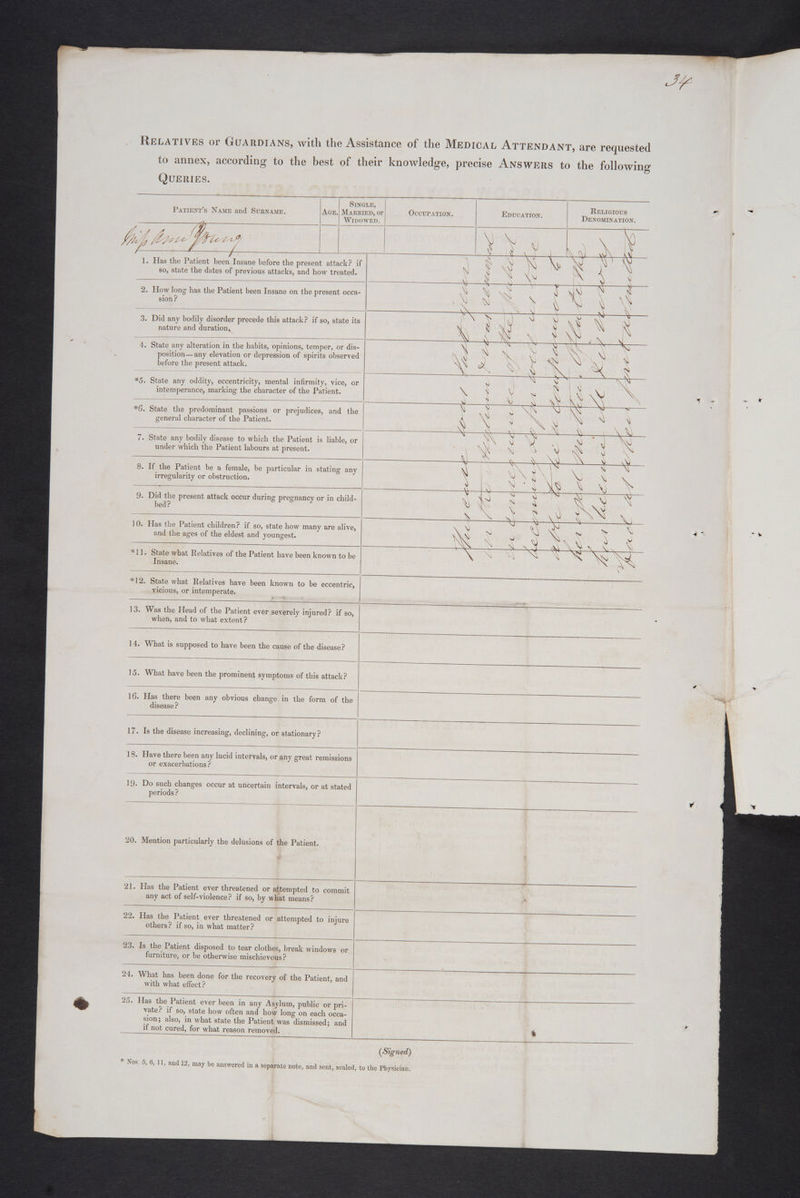 34
RELATIVES or GUARDIANS, with the Assistance of the MEDICAL ATTENDANT, are requested
to annex, according to the best of their knowledge, precise ANSWERS to the following
QUERIES.
PATIENT'S NAME and SURNAME.
AGE.
SINGLE, MARRIED, or WIDOWED.
OCCUPATION.
EDUCATION.
RELIGIOUS DENOMINATION.
Miss Ann Young
1. Has the Patient been Insane before the present attack? if
so, state the dates of previous attacks, and how treated.
2. How long has the Patient been Insane on the present occa-
sion?
3. Did any bodily disorder precede this attack? if so, state its
nature and duration.
4. State any alteration in the habits, opinions, temper, or dis-
position—any elevation or depression of spirits observed
before the present attack.
*5. State any oddity, eccentricity, mental infirmity, vice, or
intemperance, marking the character of the Patient.
*6. State the predominant passions or prejudices, and the
general character of the Patient.
7. State any bodily disease to which the Patient is liable, or
under which the Patient labours at present.
8. If the Patient be a female, be particular in stating any
irregularity or obstruction.
9. Did the present attack occur during pregnancy or in child-
bed?
10. Has the Patient children? if so, state how many are alive,
and the ages of the eldest and youngest.
*11. State what Relatives of the Patient have been known to be
Insane.
*12. State what Relatives have been known to be eccentric,
vicious, or intemperate.
13. Was the Head of the Patient ever severely injured? if so,
when, and to what extent?
14. What is supposed to have been the cause of the disease?
15. What have been the prominent symptoms of this attack?
16. Has there been any obvious change in the form of the
disease?
17. Is the disease increasing, declining, or stationary?
18. Have there been any lucid intervals, or any great remissions
or exacerbations?
19. Do such changes occur at uncertain intervals, or at stated
periods?
20. Mention particularly the delusions of the Patient.
21. Has the Patient ever threatened or attempted to commit
any act of self-violence? if so, by what means?
22. Has the Patient ever threatened or attempted to injure
others? if so, in what matter?
23. Is the Patient disposed to tear clothes, break windows or
furniture, or be otherwise mischievous?
24. What has been done for the recovery of the Patient, and
with what effect?
25. Has the Patient ever been in any Asylum, public or pri-
vate? if so, state how often and how long on each occa-
sion; also, in what state the Patient was dismissed; and
if not cured, for what reason removed.
This case was last year
in the Asylum & was removed
in consequence of the patient
becoming so far well as to be
able to be a companion to
her aged mother. Of late she
has become